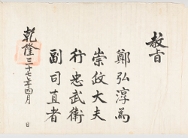 敎旨
鄭弘淳爲
崇政大夫
行忠武衛
副司直者
乾隆三十七年四月 日